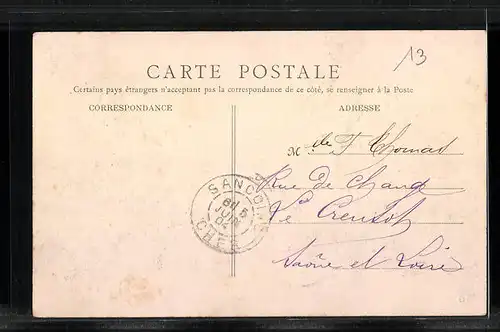 13
CARTE POSTALE
Certains pays étrangers n'acceptant pas la correspondance de ce côté, se renseigner à la Poste
CORRESPONDANCE
ADRESSE
M de T Thomas
Rue de Chanze
Le Creusot
Saône et Loire
SANCOINS
5
JUIN
CHER